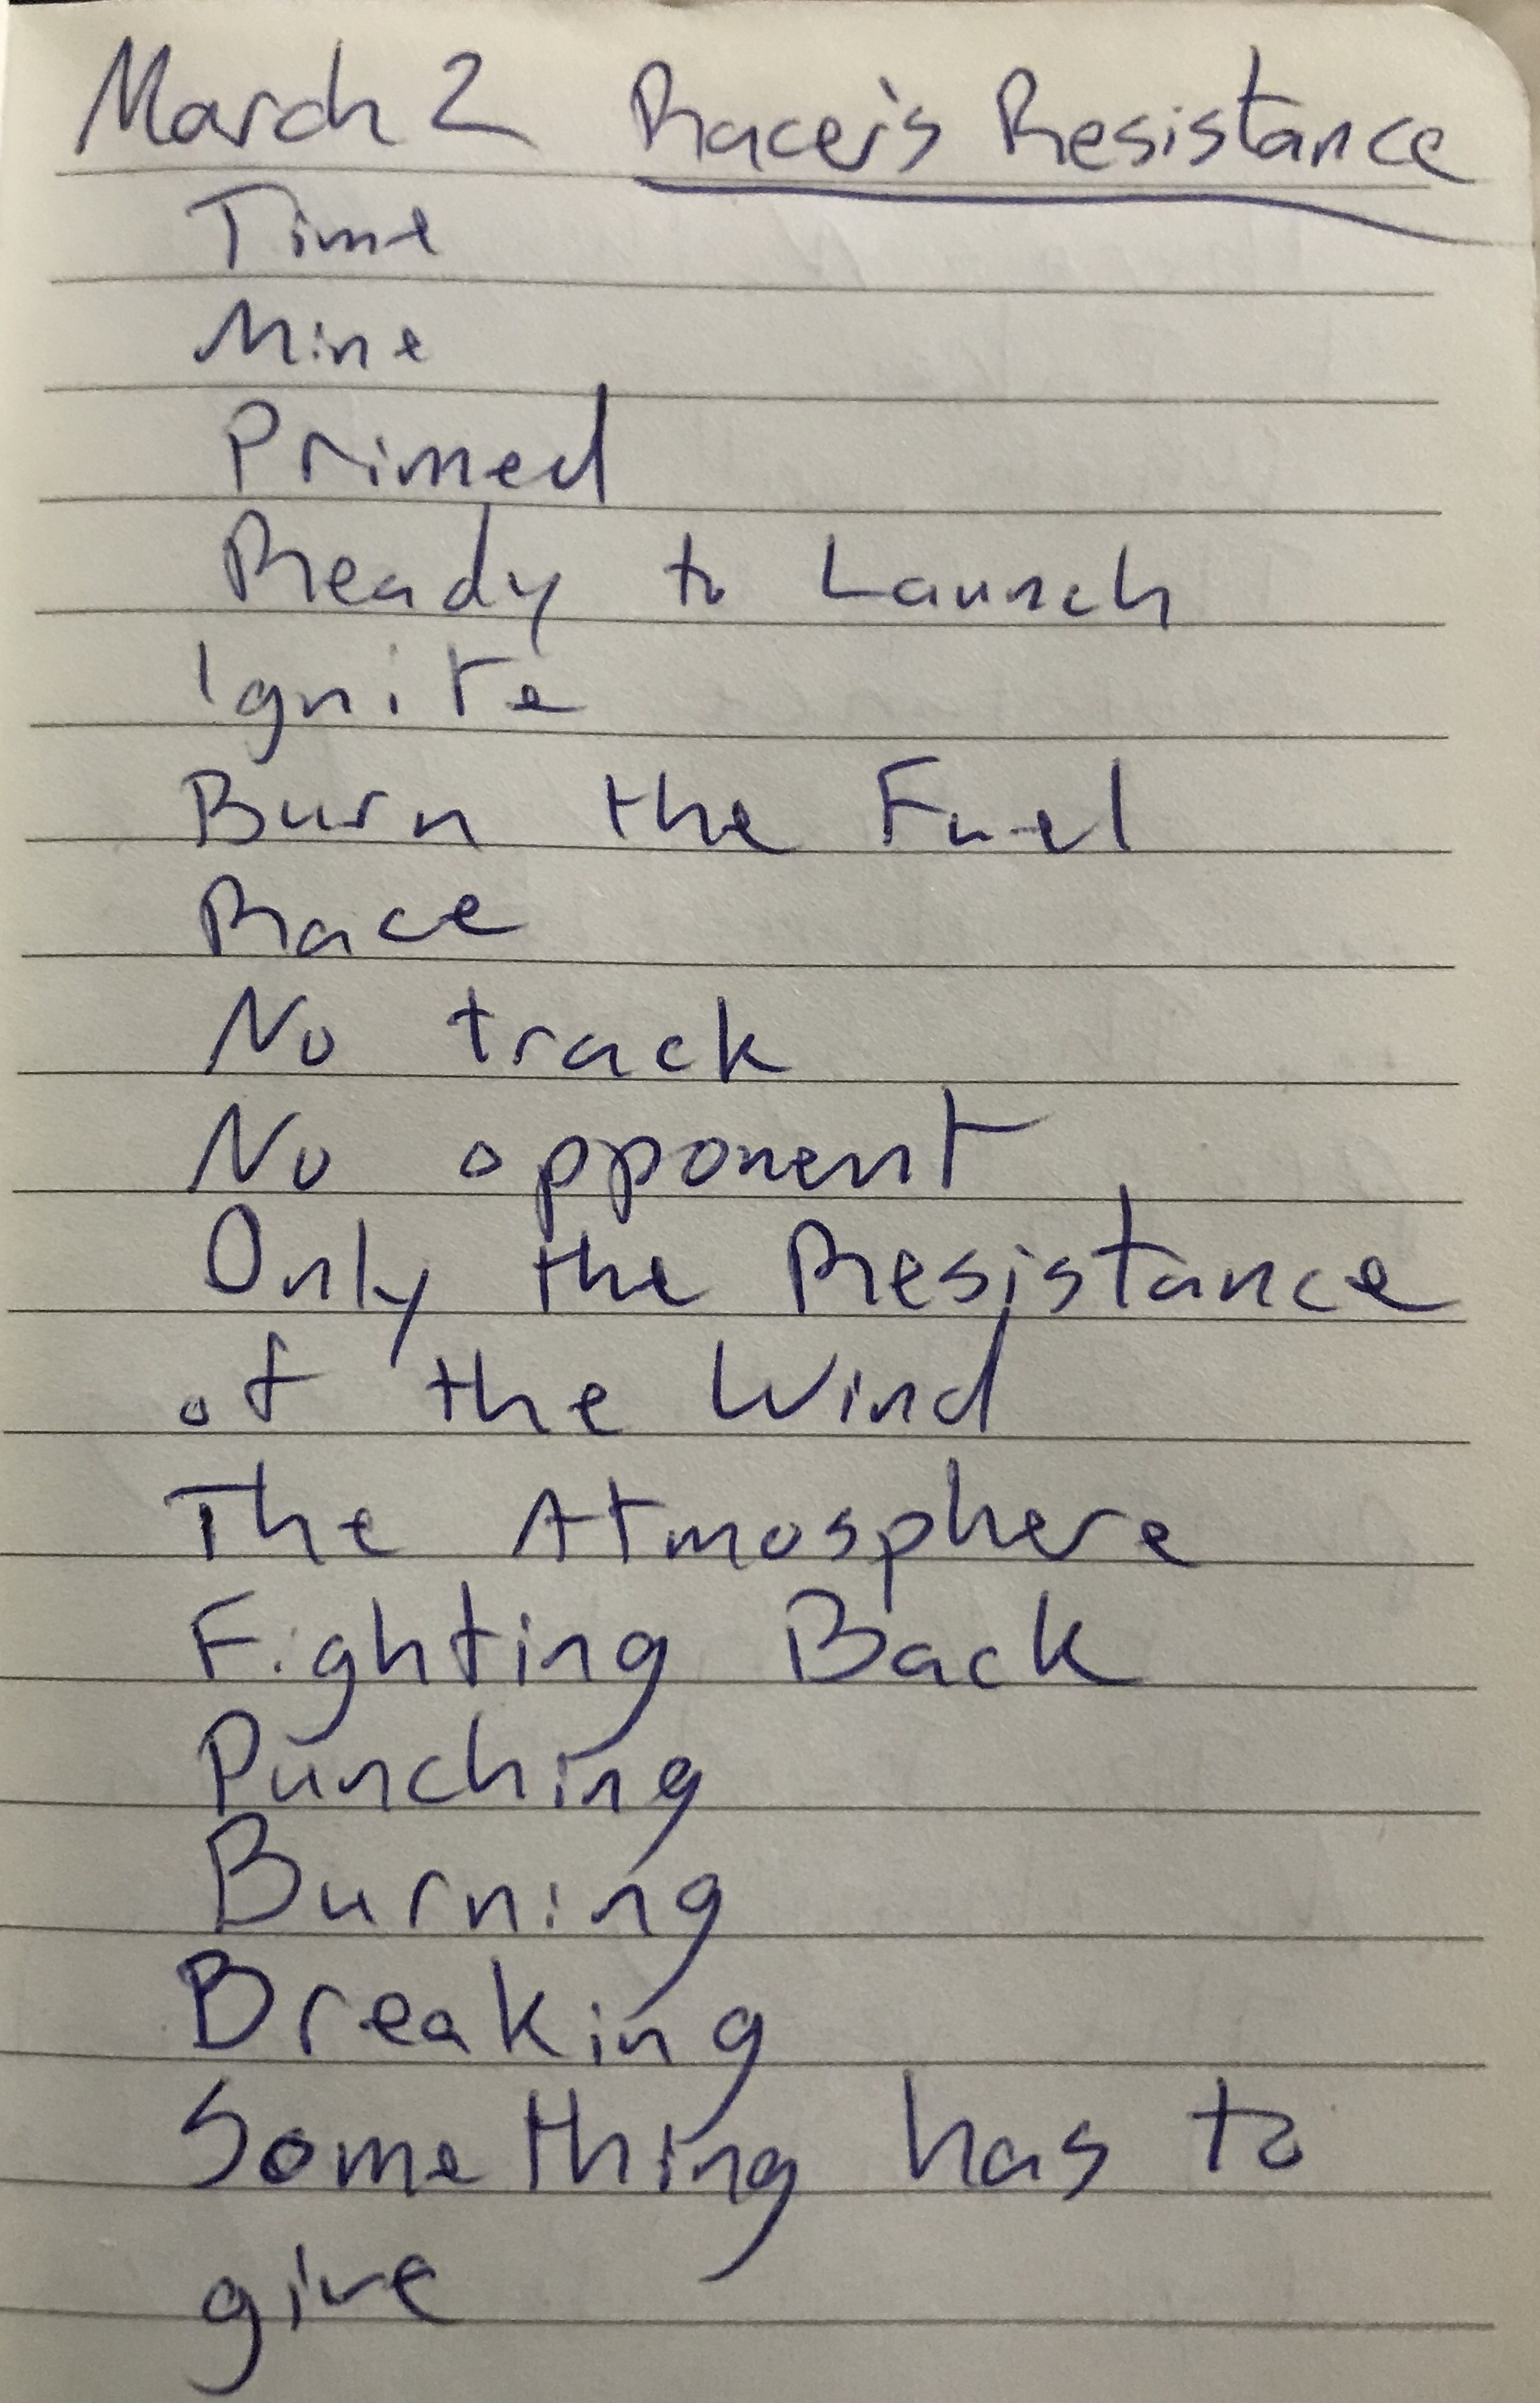 March 2 Racer's Resistance
Time
Mine
Primed
Ready to Launch
Ignite
Burn the Fuel
Race
No track
No opponent
Only the Resistance
of the Wind
The Atmosphere
Fighting Back
Punching
Burning
Breaking
Something has to
give